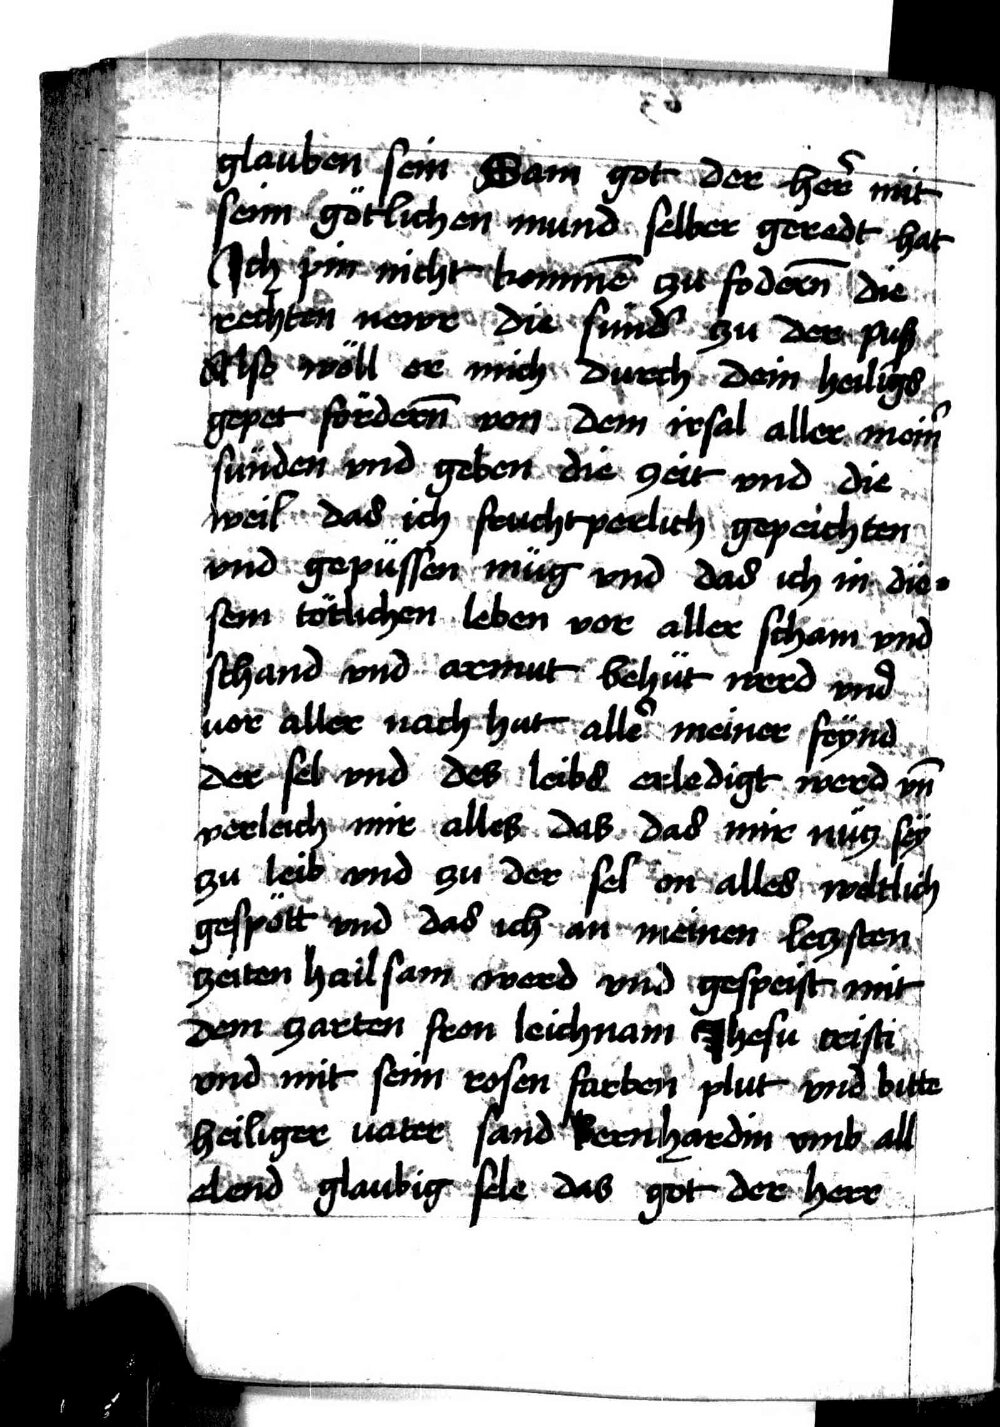 glauben sein Sam got der her̃ mit
seim götlichen mund selber geredt hat
Ich pin nicht komme᷑ zu fodern̄ die
rechten newr die sünd᷑ zu der puß
Also wöll er mich durch dein heiligs
gepet fördern̄ von dem irsal aller mein᷑
sünden vnd geben die zeit vnd die
weil das ich fruchtperlich gepeichten
vnd gepüssen müg vnd das ich in die=
sem tötlichen leben vor aller scham vnd
schand vnd armut behüt werd vnd
vor aller nach hut alle᷑ meiner feÿnd
der sel vnd des leibs erledigt werd vn̄
verleich mir alles das das mir nütz seÿ
zu leib vnd zu der sel on alles weltlich
gespött vnd das ich an meinen letzsten
zeiten hailsam werd vnd gespeist mit
dem zarten fron leichnam Jhesu cristi
vnd mit seim rosen farben plut vnd bitte
heiliger vater sand Bernhardin vmb all
elend glaubig sele das got der herr